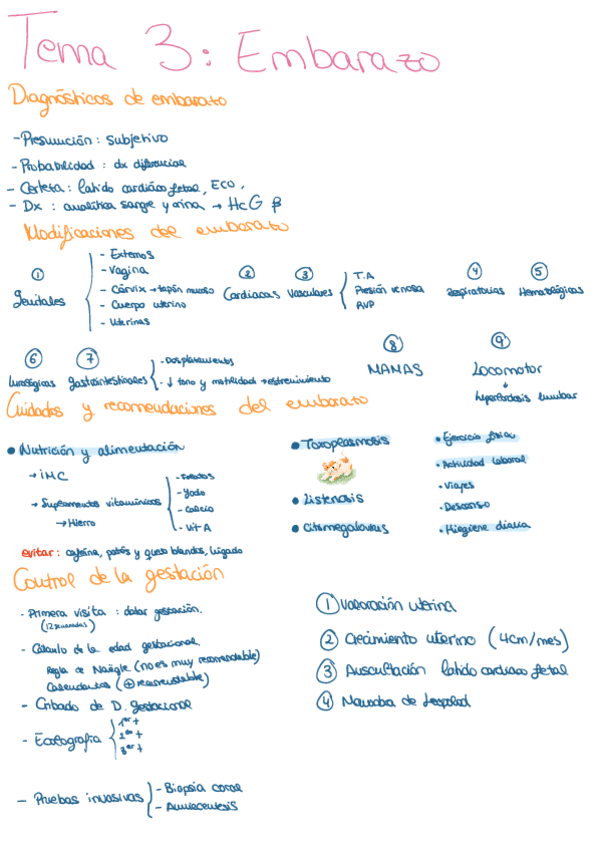 Tema 3: Embarazo
Diagnósticos de embarazo
- Presunción: subjetivo
- Probabilidad: dx diferencial
- Certeza: latido cardiáco fetal, ECO,
- Dx: analítica sangre y orina → HcG β
Modificaciones del embarazo
① Genitales
- Externos
- Vagina
- Cérvix → tapón mucoso
- Cuerpo uterino
- Uterinas
② Cardiacas
③ Vasculares
T.A
Presión venosa
RVP
④ Respiratorias
⑤ Hematológicas
⑥ Urológicas
⑦ Gastrointestinales
- Desplazamiento
- ↓ tono y motilidad → estreñimiento
⑧ MAMAS
⑨ Locomotor
↓
hiperlordosis lumbar
Cuidados y recomendaciones del embarazo
• Nutrición y alimentación
→ IMC
→ Suplementos vitamínicos
→ Hierro
- Yodo
- Calcio
- Vit A
evitar: cafeína, patés y queso blandos, hígado
• Toxoplasmosis
• Listeriosis
• Citomegalovirus
• Ejercicio físico
• Actividad laboral
• Viajes
• Descanso
• Hiegiene diaria
Control de la gestación
- Primera visita: datar gestación.
(12 semanas)
- Cálculo de la edad gestacional.
Regla de Naëgle (no es muy recomendable)
Calendarios (⊕ recomendable)
- Cribado de D. gestacional
- Ecografía
1er t
2do t
3er t
- Pruebas invasivas
- Biopsia corial
- Amniocentesis
① Valoración uterina
② Crecimiento uterino (4cm/mes)
③ Auscultación latido cardiaco fetal
④ Maniobra de Leopold